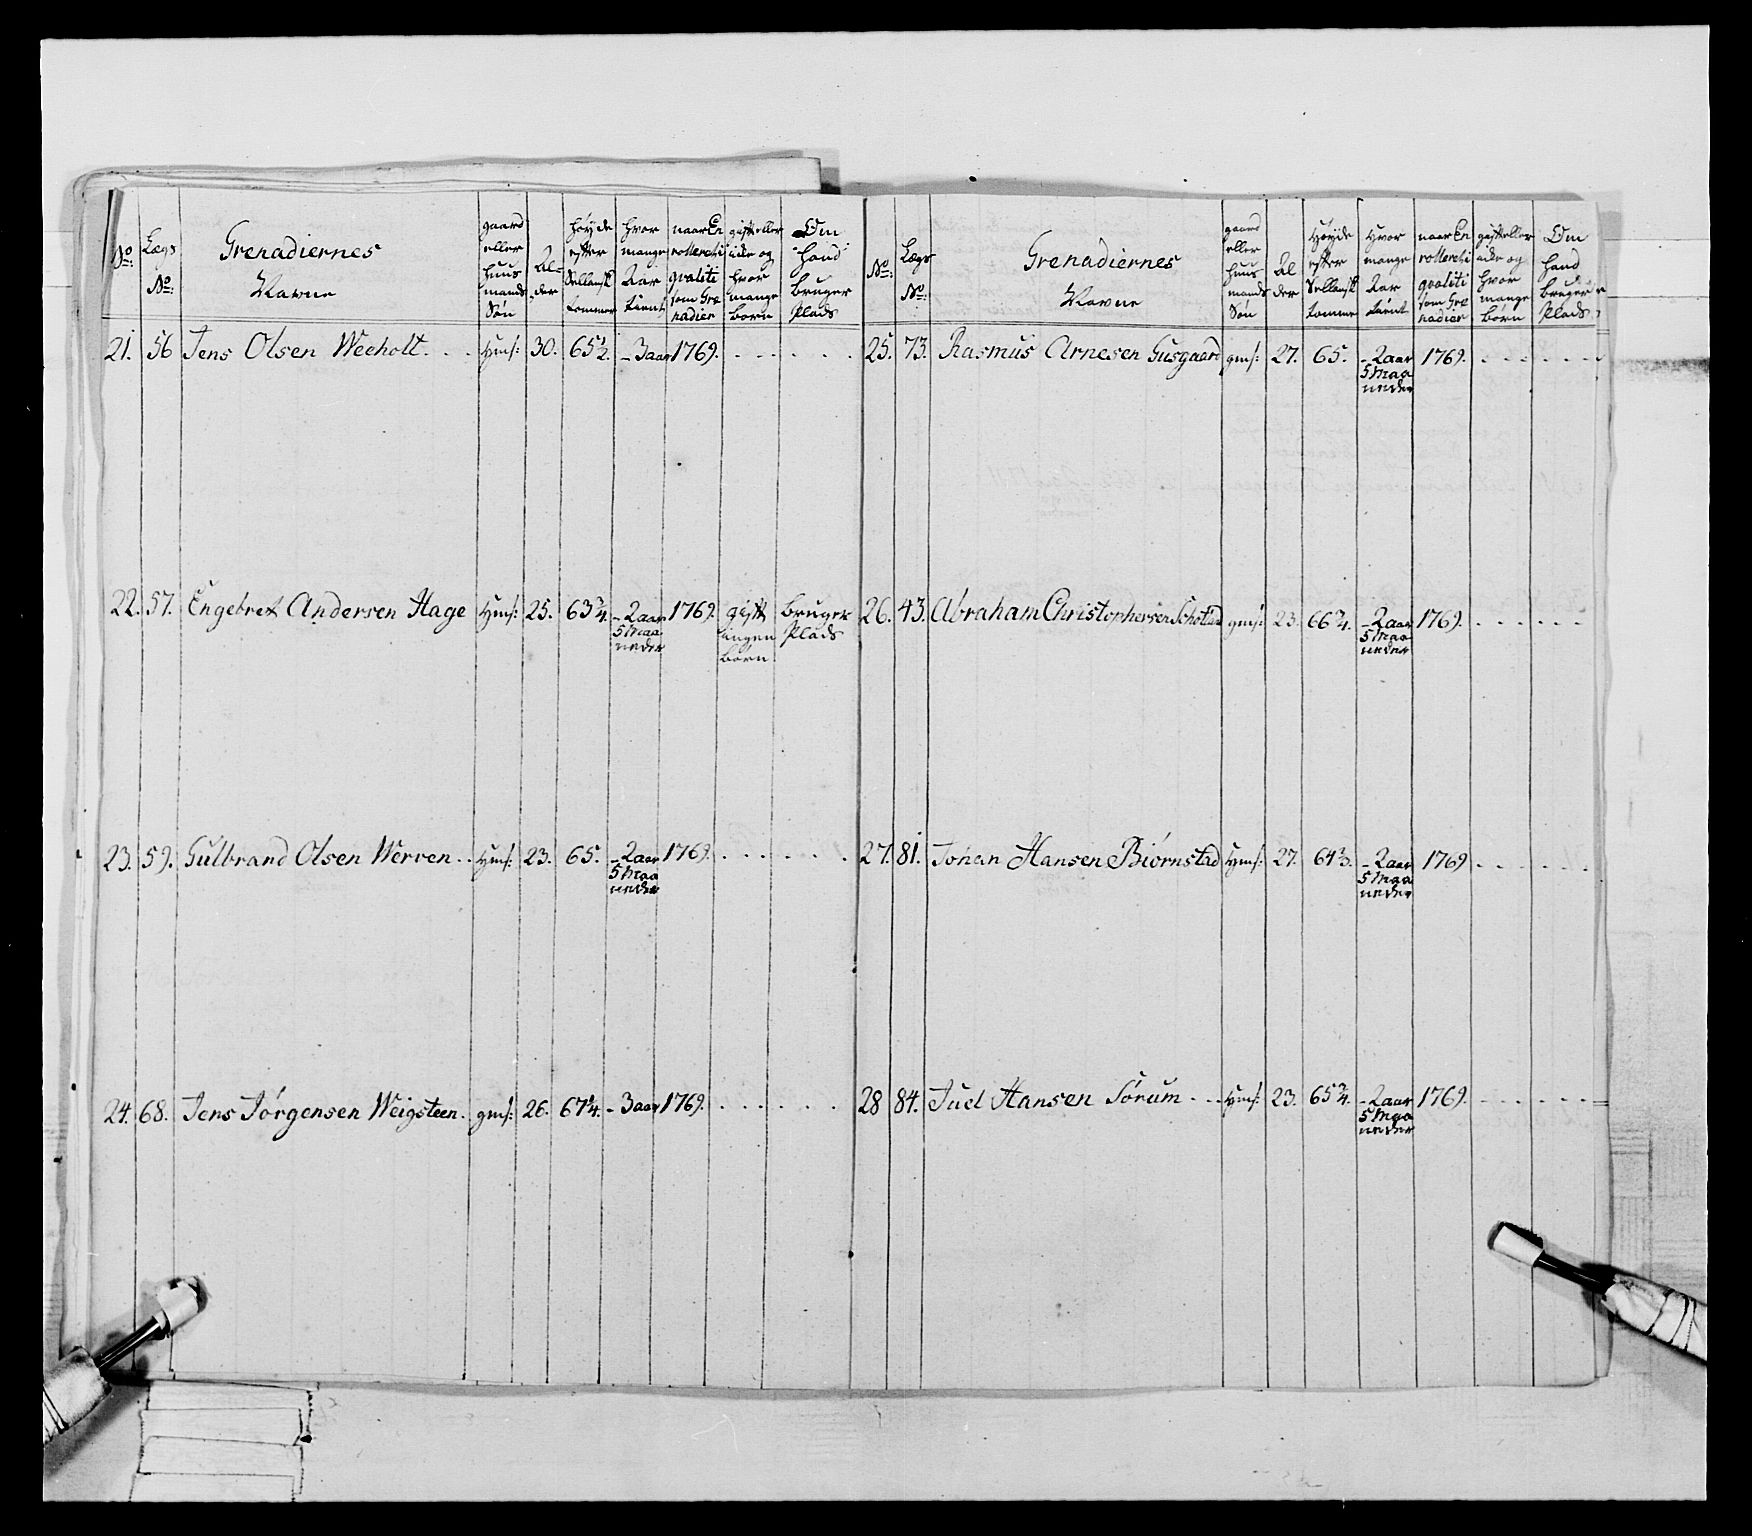 No: Lægs No: Grenadiernes Navne gaard eller huus mands Søn Al-der høyde efter Sellandsk tommer hvor mange Aar tient naar Enrolleret i qvaliti som Grenadier gift eller icke og hvor mange børn Om hand bruger Plads
21. 56 Jens Olsen Weeholt. . . Hmſ: 30. 65 1/2. - 3 aar 1769. . . . . . .
22. 57. Engebret Andersen Hage Hmſ: 25. 63 3/4. - 2 aar 1769. gift bruger
5 Maa ingen Plads
neder børn
23. 59. Gulbrand Olsen Werven. . Hmſ: 23. 65. - 2 aar 1769. . . . . . .
5 Maa
neder
24. 68. Jens Jørgensen Weigsteen. gmſ: 26. 67 1/4. - 3 aar 1769. . . . . . .
No: Lægs No: Grenadiernes Navne gaard eller huus mands Søn Al der Høyde efter Sellandsk tomme Hvor mange Aar tient naar Enrolleret i qvaliti som Grenadier gift eller icke og hvor mange børn Om hand bruger Plads
25. 73. Rasmus Arnesen Gusgaard gmſ: 27. 65. - 2 aar 1769. . . . . . .
5 Maa
neder
26. 43. Abraham Christophersen gmſ: 23. 66 3/4. - 2 aar 1769. . . . . . .
5 Maa
neder
27. 81. Johan Hansen Biørnstad Hmſ: 27. 64 - 2 aar 1769 . . . . . .
5 Maa
neder
28 84. Juel Hansen Sørum. . . Hmſ: 23. 65 3/4. - 2 aar 1769. . . . . . .
5 Maa
neder